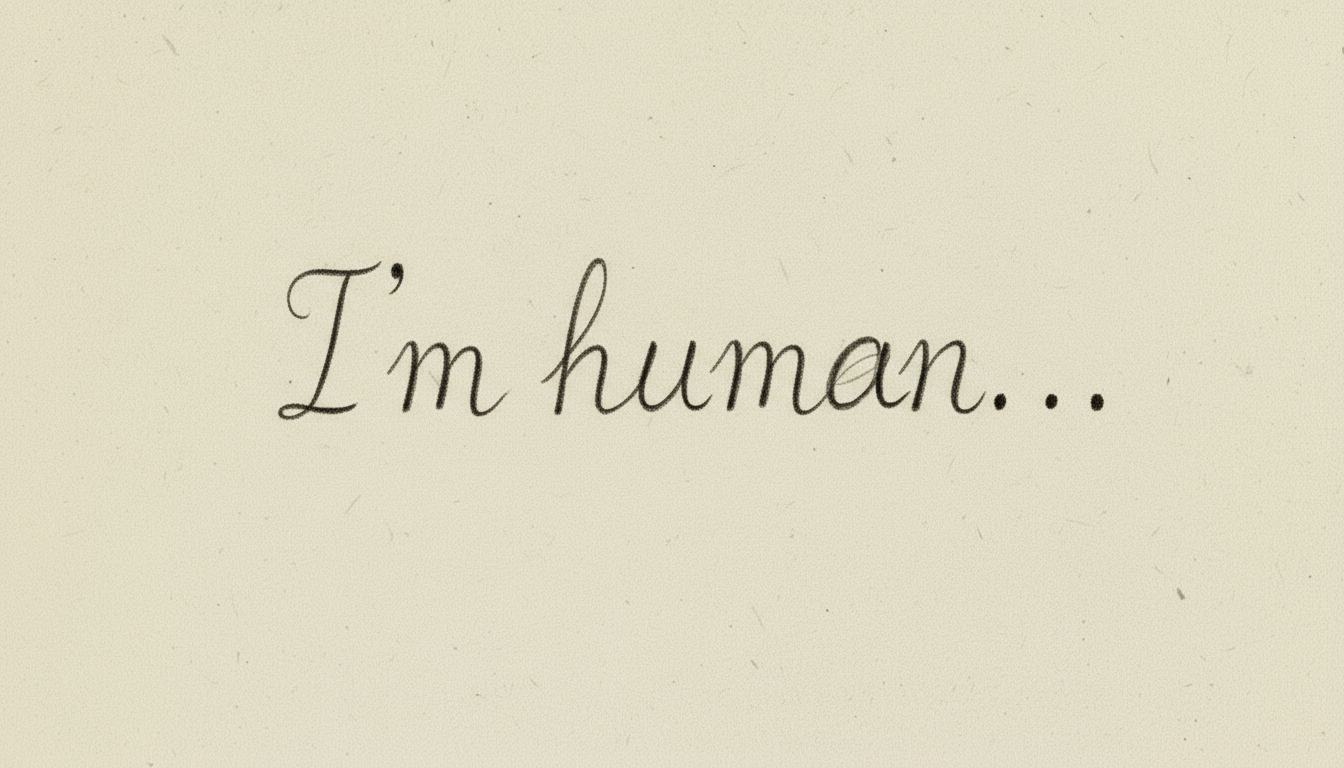 I’m human...